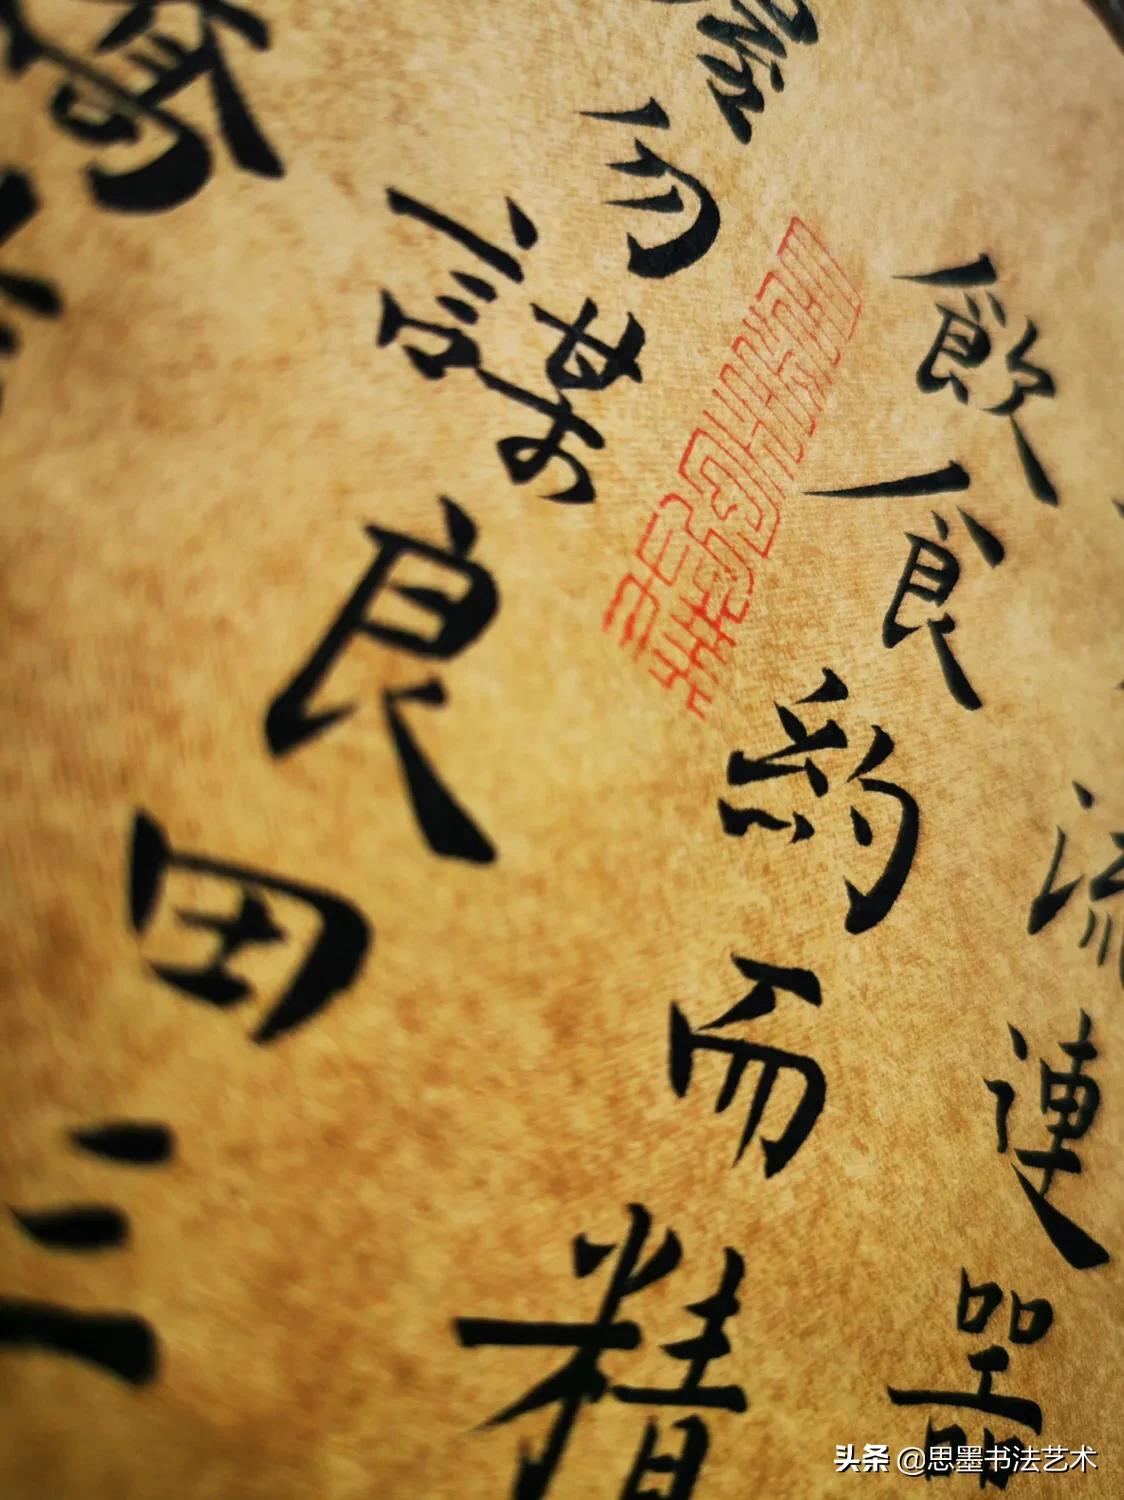 流連器
飲食約而精
屋勿謀良田三
头条 @思墨书法艺术